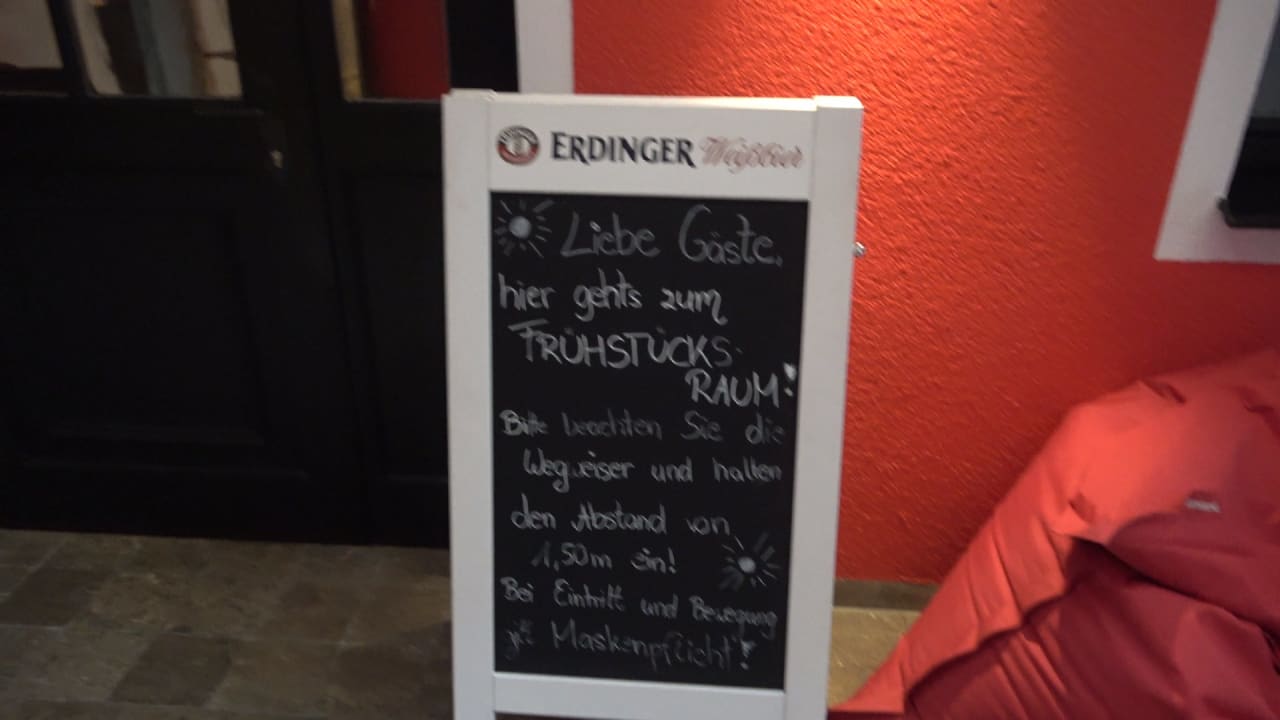 ERDINGER Weißbier
Liebe Gäste,
hier gehts zum
FRÜHSTÜCKS-
RAUM!
Bitte beachten Sie die
Wegweiser und halten
den Abstand von
1,50m ein!
Bei Eintritt und Bewegung
gilt Maskenpflicht!